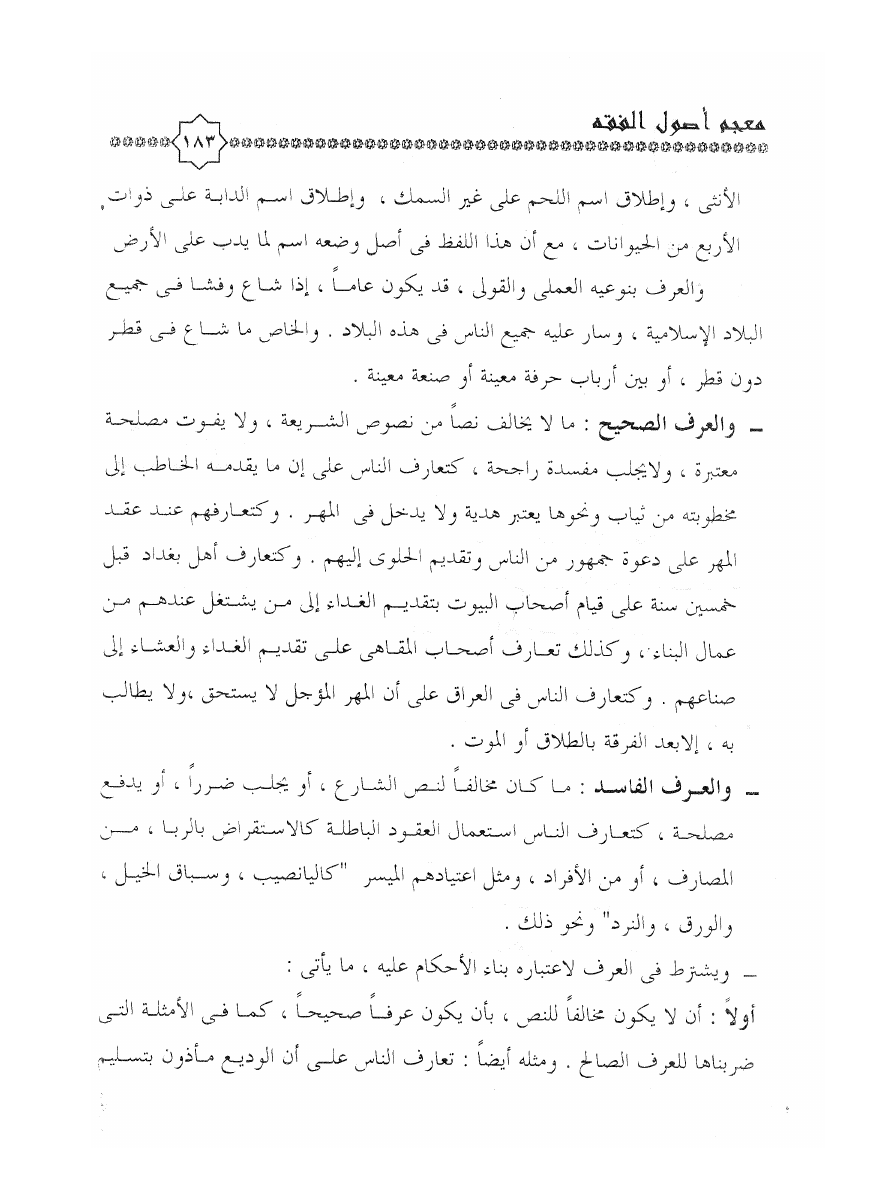 معجم أصول الفقه
١٨٣
الأنثى ، وإطلاق اسم اللحم على غير السمك ، وإطلاق اسم الدابة على ذوات
الأربع من الحيوانات ، مع أن هذا اللفظ فى أصل وضعه اسم لما يدب على الأرض
والعرف بنوعيه العملى والقولى ، قد يكون عاماً ، إذا شاع وفشا فى جميع
البلاد الإسلامية ، وسار عليه جميع الناس فى هذه البلاد . والخاص ما شاع فى قطر
دون قطر ، أو بين أرباب حرفة معينة أو صنعة معينة .
ـ والعرف الصحيح : ما لا يخالف نصاً من نصوص الشريعة ، ولا يفوت مصلحة
معتبرة ، ولايجلب مفسدة راجحة ، كتعارف الناس على إن ما يقدمه الخاطب إلى
مخطوبته من ثياب ونحوها يعتبر هدية ولا يدخل فى المهر . وكتعارفهم عند عقد
المهر على دعوة جمهور من الناس وتقديم الحلوى إليهم . وكتعارف أهل بغداد قبل
خمسين سنة على قيام أصحاب البيوت بتقديم الغداء إلى من يشتغل عندهم من
عمال البناء ، وكذلك تعارف أصحاب المقاهى على تقديم الغداء والعشاء إلى
صناعهم . وكتعارف الناس فى العراق على أن المهر المؤجل لا يستحق ،ولا يطالب
به ، إلابعد الفرقة بالطلاق أو الموت .
ـ والعرف الفاسد : ما كان مخالفاً لنص الشارع ، أو يجلب ضرراً ، أو يدفع
مصلحة ، كتعارف الناس استعمال العقود الباطلة كالاستقراض بالربا ، من
المصارف ، أو من الأفراد ، ومثل اعتيادهم الميسر "كاليانصيب ، وسباق الخيل ،
والورق ، والنرد" ونحو ذلك .
ـ ويشترط فى العرف لاعتباره بناء الأحكام عليه ، ما يأتى :
أولاً : أن لا يكون مخالفاً للنص ، بأن يكون عرفاً صحيحاً ، كما فى الأمثلة التى
ضربناها للعرف الصالح . ومثله أيضاً : تعارف الناس على أن الوديع مأذون بتسليم